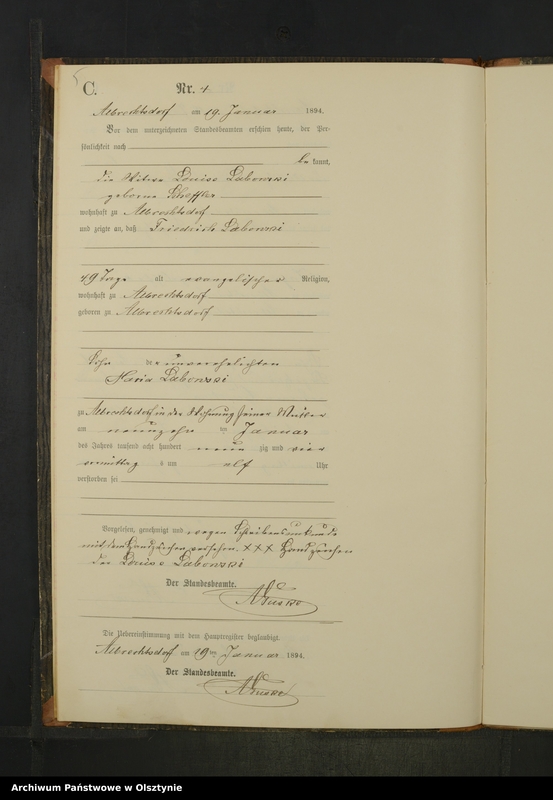 C. Nr. 4
Albrechtsdorf am 19. Januar 1894.
Vor dem unterzeichneten Standesbeamten erschien heute, der Per-
sönlichkeit nach
be kannt,
die Witwe Louise Labowski
geborne Scheffler
wohnhaft zu Albrechtsdorf
und zeigte an, daß Friedrich Labowski
49 Tage alt evangelischer Religion,
wohnhaft zu Albrechtsdorf
geboren zu Albrechtsdorf
Sohn der unverehelichten
Maria Labowski
zu Albrechtsdorf in der Wohnung seiner Mutter
am neunzehn ten Januar
des Jahres tausend acht hundert neun zig und vier
vormittags um elf Uhr
verstorben sei
Vorgelesen, genehmigt und wegen Schreibensunkunde
mit dem Handzeichen versehen. XXX Handzeichen
der Louise Labowski
Der Standesbeamte.
Die Uebereinstimmung mit dem Hauptregister beglaubigt.
Albrechtsdorf am 19ten Januar 1894.
Der Standesbeamte.
Archiwum Państwowe w Olsztynie